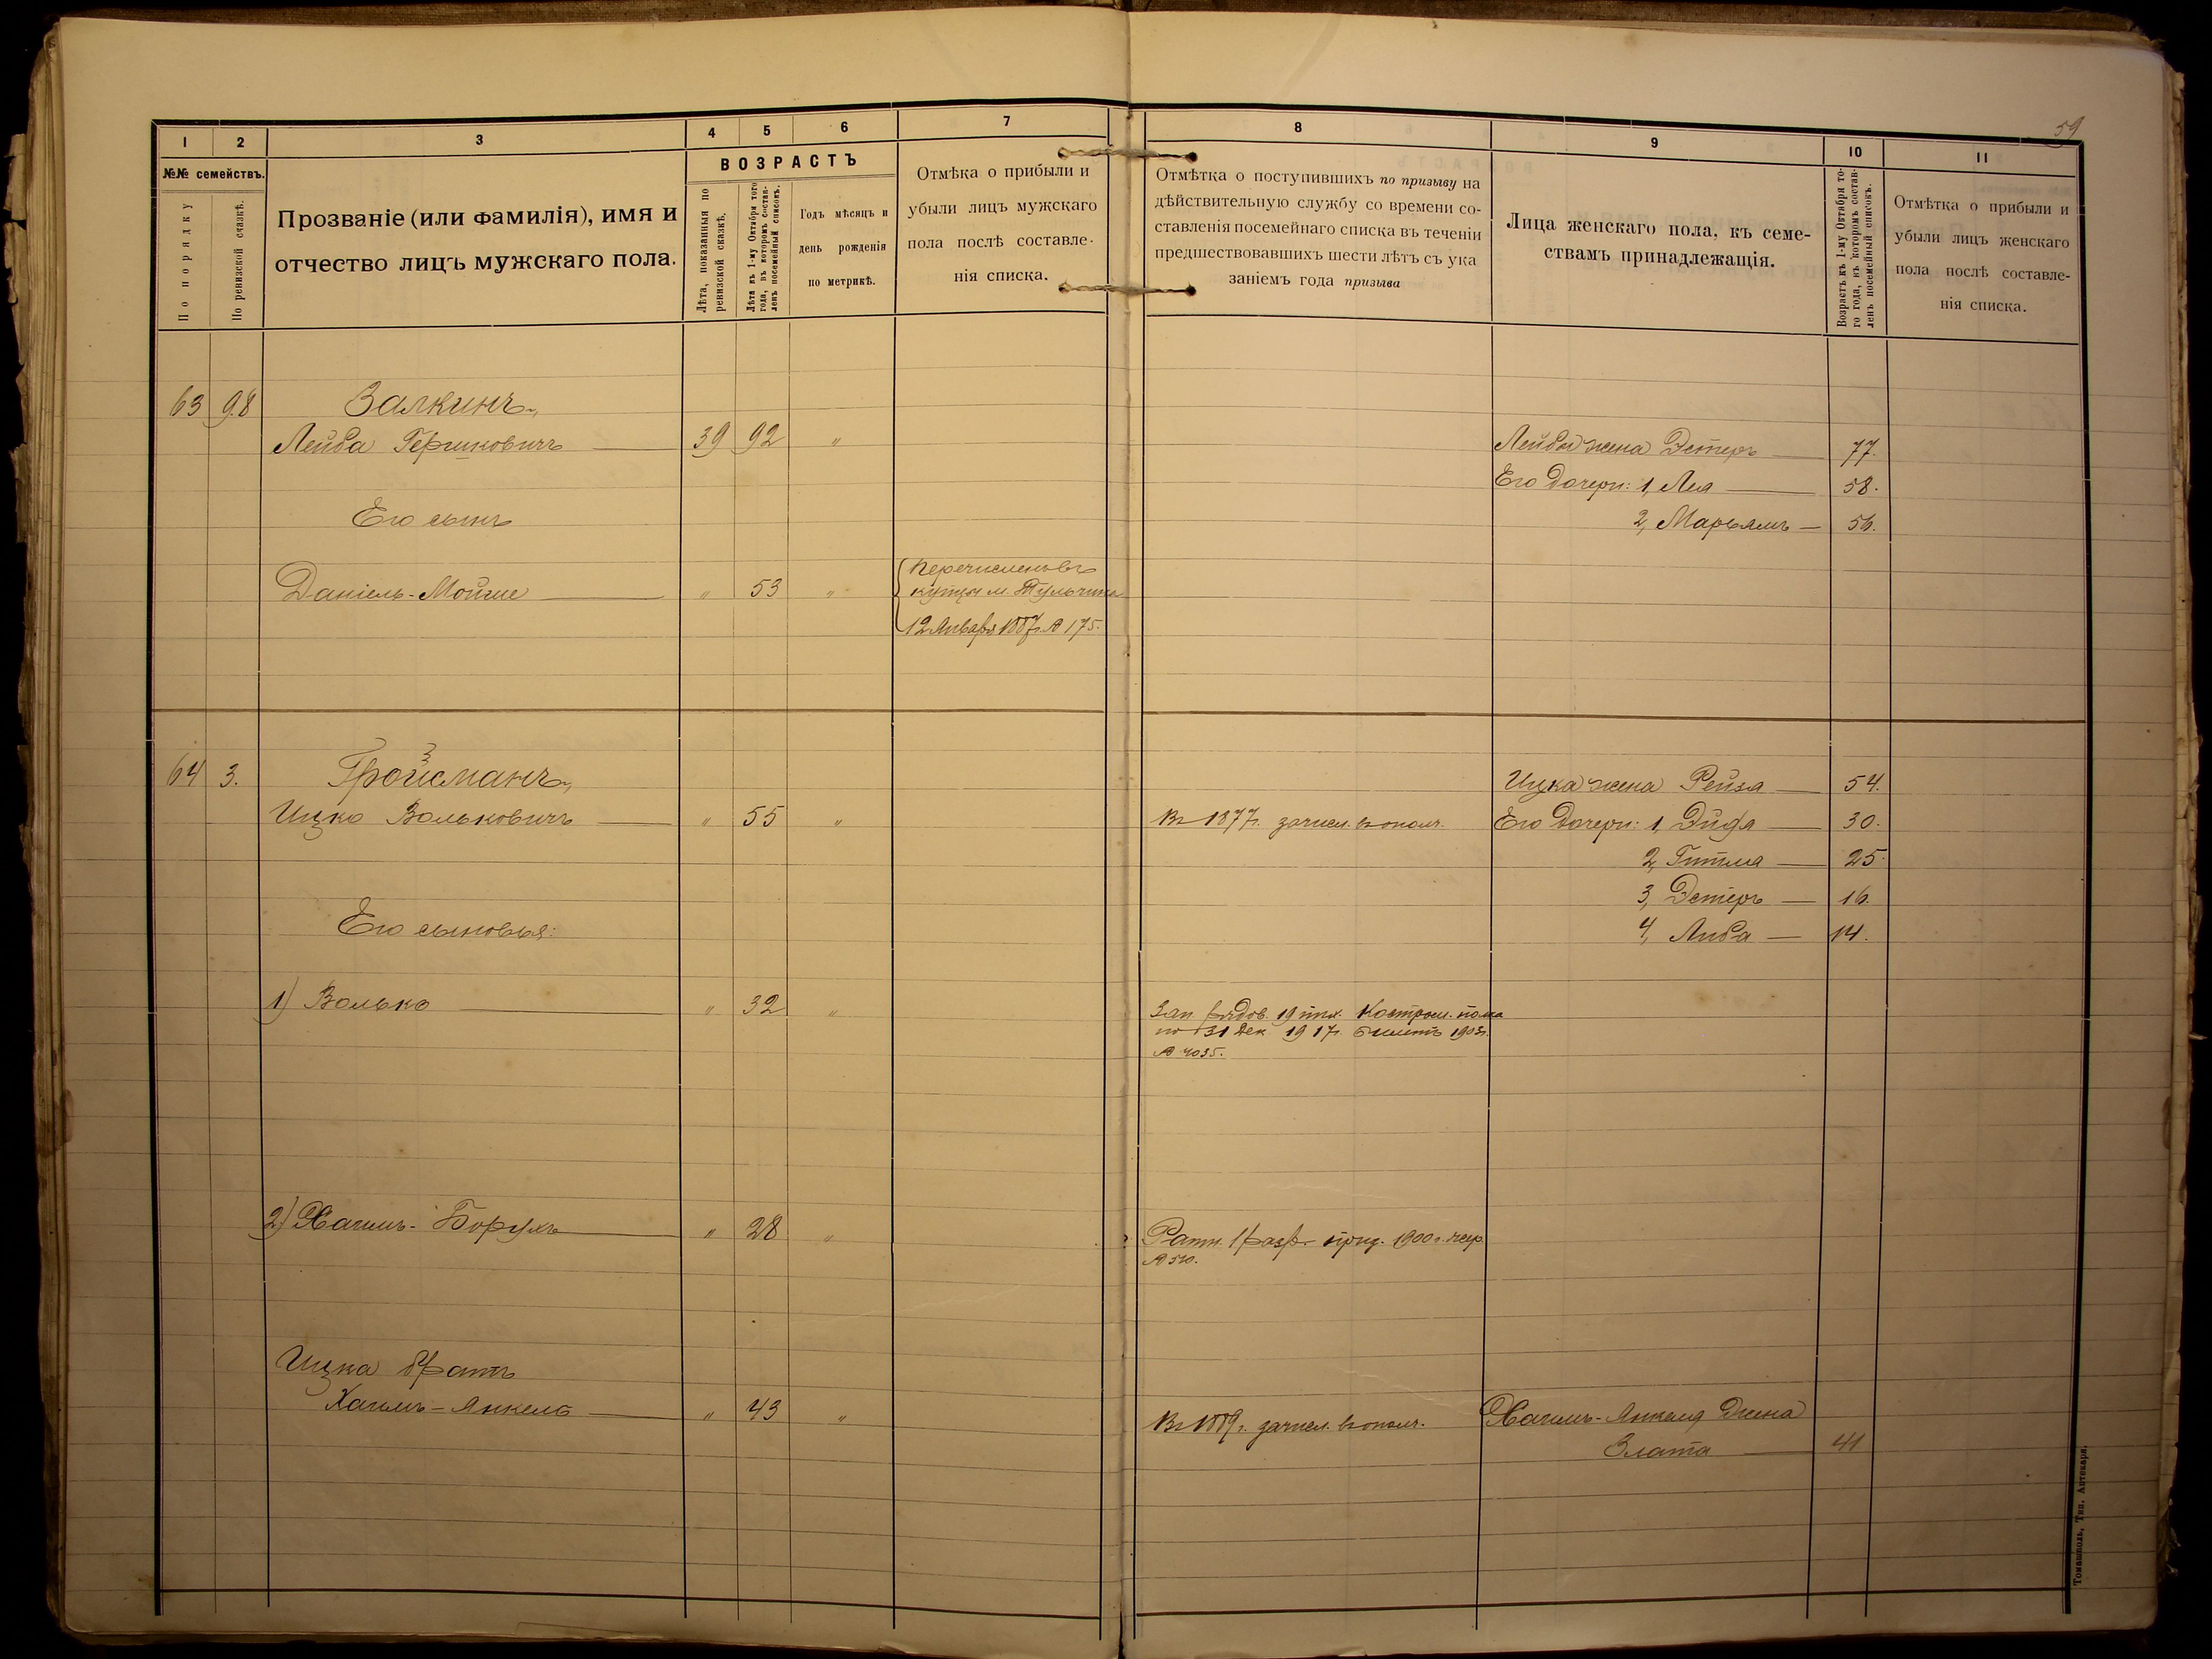 59
1 2 3 4 5 6 7 8 9 10 11
№№ семействъ.
По порядку
По ревизской сказкѣ.
Прозваніе (или фамилія), имя и
отчество лицъ мужскаго пола.
ВОЗРАСТЪ
Лѣта, показанныя по
ревизской сказкѣ.
Лѣта къ 1-му Октября того
года, въ которомъ состав-
ленъ посемейный списокъ.
Годъ мѣсяцъ и
день рожденія
по метрикѣ.
Отмѣка о прибыли и
убыли лицъ мужскаго
пола послѣ составле-
нія списка.
Отмѣтка о поступившихъ по призыву на
дѣйствительную службу со времени со-
ставленія посемейнаго списка въ теченіи
предшествовавшихъ шести лѣтъ съ ука
заніемъ года призыва
Лица женскаго пола, къ семе-
ствамъ принадлежащія.
Возрастъ къ 1-му Октября то-
го года, въ которомъ состав-
ленъ посемейный списокъ.
Отмѣтка о прибыли и
убыли лицъ женскаго
пола послѣ составле-
нія списка.
63 98 Залкинъ
Лейба Гершковичъ 39 92 "
Лейбы жена Эстеръ 77.
Его дочери: 1, Лея 58.
Его сынъ
2, Марьямъ 56.
Даніель-Мойше " 53 "
Перечисленъ въ
купцы м. Тульчина
12 Января 1887г. № 175.
64 3. Гройсманъ
З
Ицка жена Рейза 54.
Ицко Вольковичъ " 55 "
Въ 1877г. зачисл. въ ополч.
Его дочери: 1, Эйдя 30.
2, Гитля 25.
3, Эстеръ 16.
Его сыновья:
4, Либа 14.
1) Волько " 32 "
Зап. рядов. 19 пѣх. Костром. полка
по 31 Дек. 1917г. билетъ 1903г.
№ 4035.
2) Хаимъ-Борухъ " 28 "
Ратн. 1 разр. приз. 1900г.
№ 510.
Ицка братъ
Хаимъ-Янкель " 43 "
Въ 1889г. зачисл. въ ополч.
Хаимъ-Янкеля жена
Злата 41
Томашполь, Тип. Аптекаря.